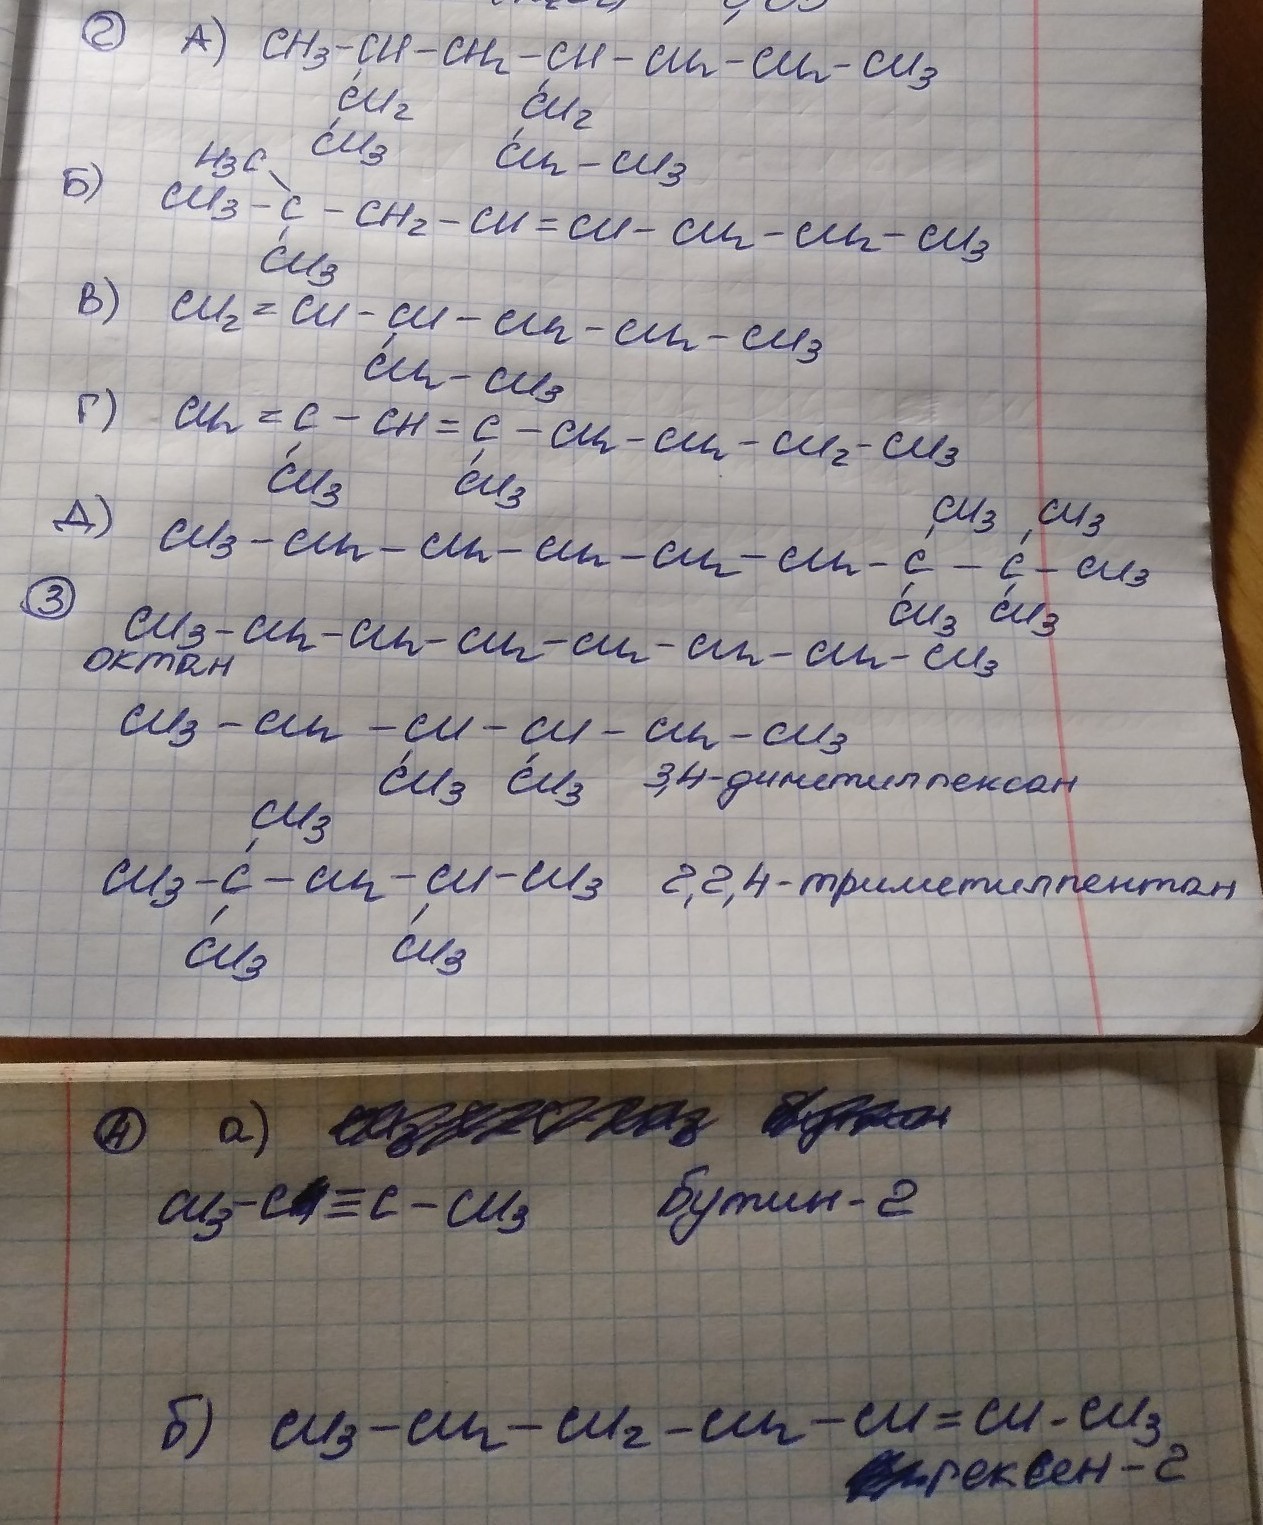 ② А) CH3-CH-CH2-CH-CH2-CH2-CH3
CH2 CH2
CH3 CH2-CH3
H3C
Б) CH3-C-CH2-CH=CH-CH2-CH2-CH3
CH3
В) CH2=CH-CH-CH2-CH2-CH3
CH2-CH3
Г) CH2=C-CH=C-CH2-CH2-CH2-CH3
CH3 CH3
CH3 CH3
Д) CH3-CH2-CH2-CH2-CH2-CH2-C-C-CH3
CH3 CH3
③
CH3-CH2-CH2-CH2-CH2-CH2-CH2-CH3
октан
CH3-CH2-CH-CH-CH2-CH3
CH3 CH3 3,4-диметилгексан
CH3
CH3-C-CH2-CH-CH3 2,2,4-триметилпентан
CH3 CH3
④ а)
CH3-C≡C-CH3 бутин-2
б) CH3-CH2-CH2-CH2-CH=CH-CH3
гексен-2